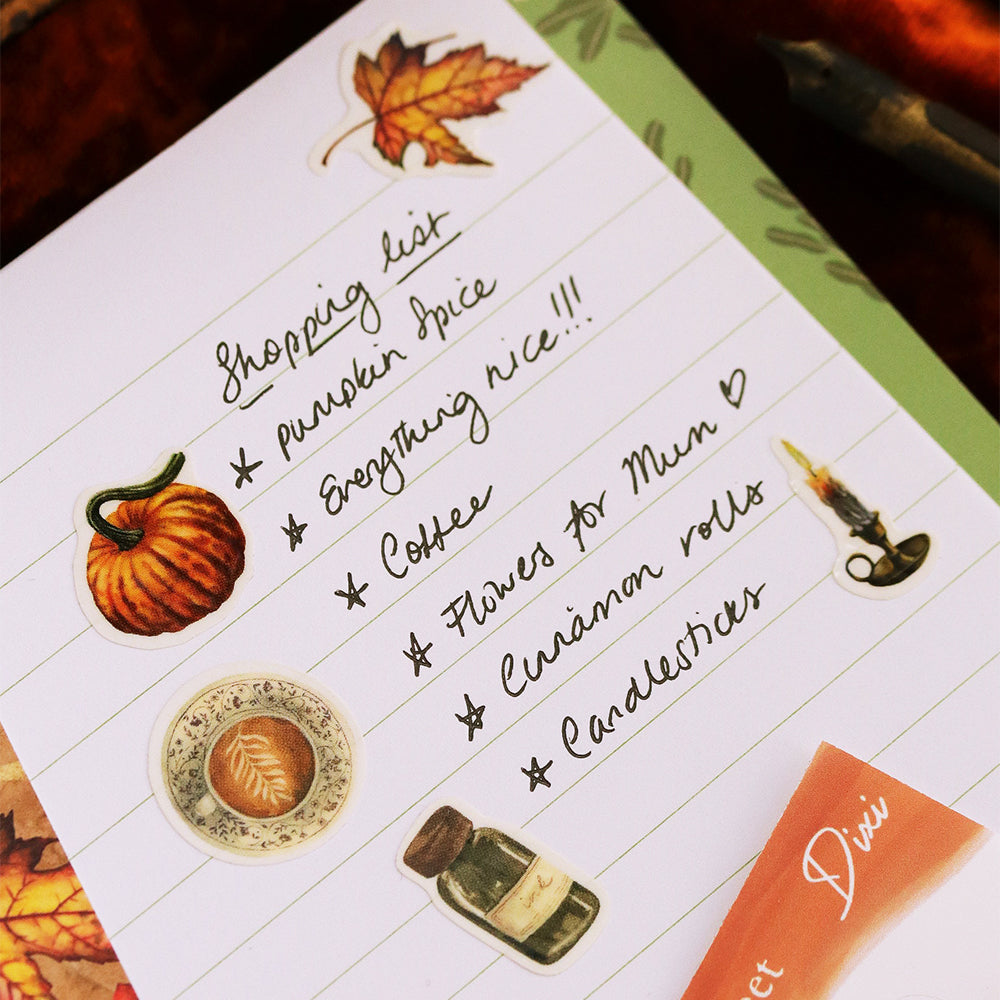 Shopping list
pumpkin spice
Everything nice!!!
Coffee
Flowers for Mum ♡
Cinnamon rolls
Candlesticks
ink
Dixi
et